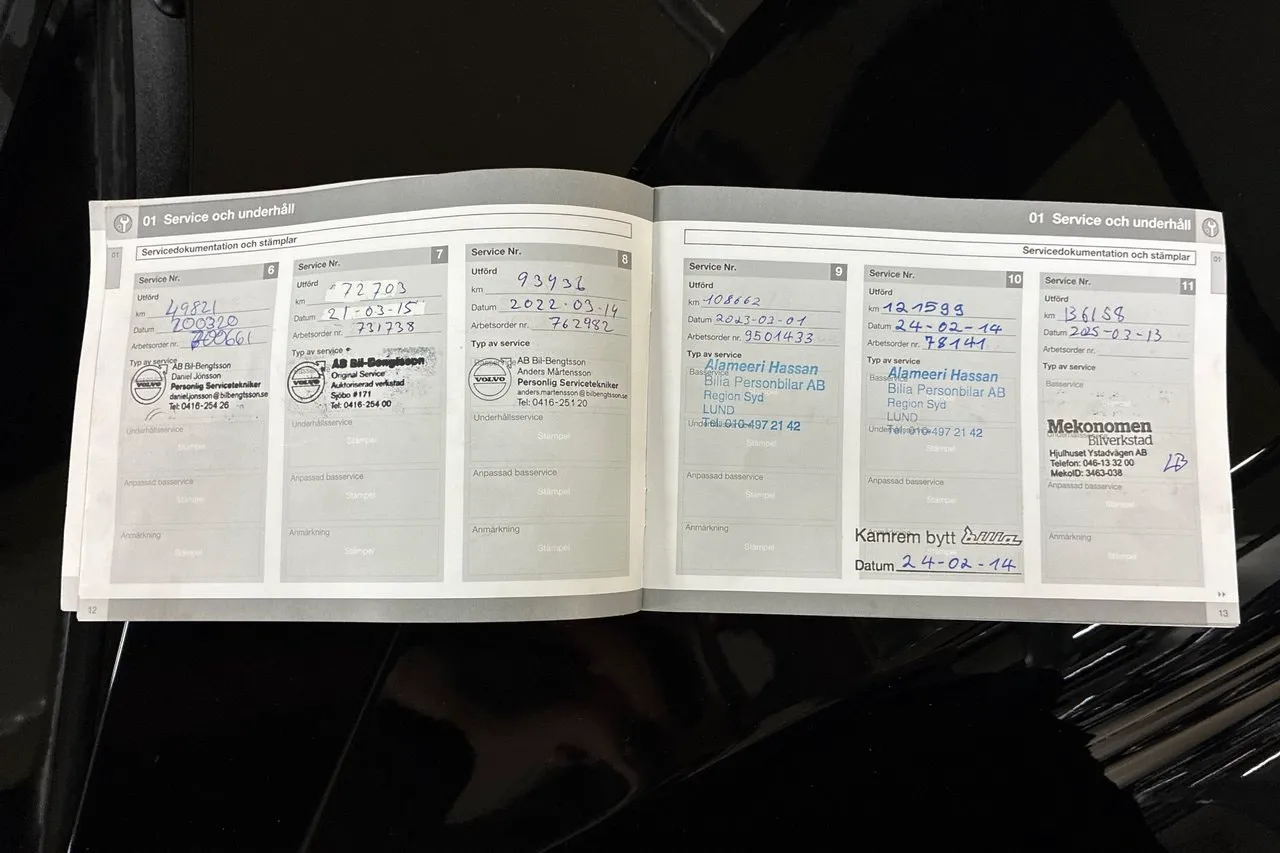 01 Service och underhåll
Servicedokumentation och stämplar
01
Service Nr. 6
Utförd
km 49821
Datum 200320
Arbetsorder nr.
Typ av service
VOLVO
AB Bil-Bengtsson
Daniel Jönsson
Personlig Servicetekniker
daniel.jonsson@bilbengtsson.se
Tel: 0416-254 26
Underhållsservice
Stämpel
Anpassad basservice
Stämpel
Anmärkning
Stämpel
Service Nr. 7
Utförd
km 72703
Datum 21-03-15
Arbetsorder nr. 731738
Typ av service
VOLVO
AB Bil-Bengtsson
Original Service
Auktoriserad verkstad
Sjöbo #171
Tel: 0416-254 00
Underhållsservice
Stämpel
Anpassad basservice
Stämpel
Anmärkning
Stämpel
Service Nr. 8
Utförd
km 93436
Datum 2022-03-14
Arbetsorder nr. 762982
Typ av service
VOLVO
AB Bil-Bengtsson
Anders Mårtensson
Personlig Servicetekniker
anders.martensson@bilbengtsson.se
Tel: 0416-251 20
Underhållsservice
Stämpel
Anpassad basservice
Stämpel
Anmärkning
Stämpel
12
01 Service och underhåll
Servicedokumentation och stämplar
01
Service Nr. 9
Utförd
km 108662
Datum 2023-03-01
Arbetsorder nr. 9501433
Typ av service
Alameeri Hassan
Bilia Personbilar AB
Region Syd
LUND
Tel. 010-497 21 42
Stämpel
Anpassad basservice
Stämpel
Anmärkning
Stämpel
Service Nr. 10
Utförd
km 121599
Datum 24-02-14
Arbetsorder nr. 78141
Typ av service
Basservice
Alameeri Hassan
Bilia Personbilar AB
Region Syd
LUND
Tel. 010-497 21 42
Stämpel
Anpassad basservice
Stämpel
Kamrem bytt
Datum 24-02-14
Service Nr. 11
Utförd
km 136158
Datum 2025-03-13
Arbetsorder nr.
Typ av service
Basservice
Mekonomen
Bilverkstad
Hjulhuset Ystadvägen AB
Telefon: 046-13 32 00
MekoID: 3463-038
Anpassad basservice
Stämpel
Anmärkning
Stämpel
13